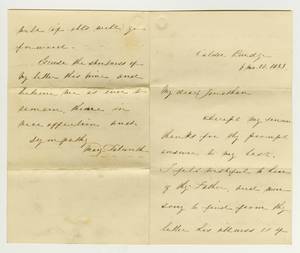 Calder Bridge
6 mo. 22. 1883
My dear Jonathan
Accept my sincere
thanks for thy prompt
answer to my last.
I felt wishful to hear
of thy Father, and am
sorry to find from thy
letter his illness is of
will if able will go
forward.
Excuse the shortness of
my letter this time and
believe me as ever to
remain, thine in
near affection and
sympathy
Mary